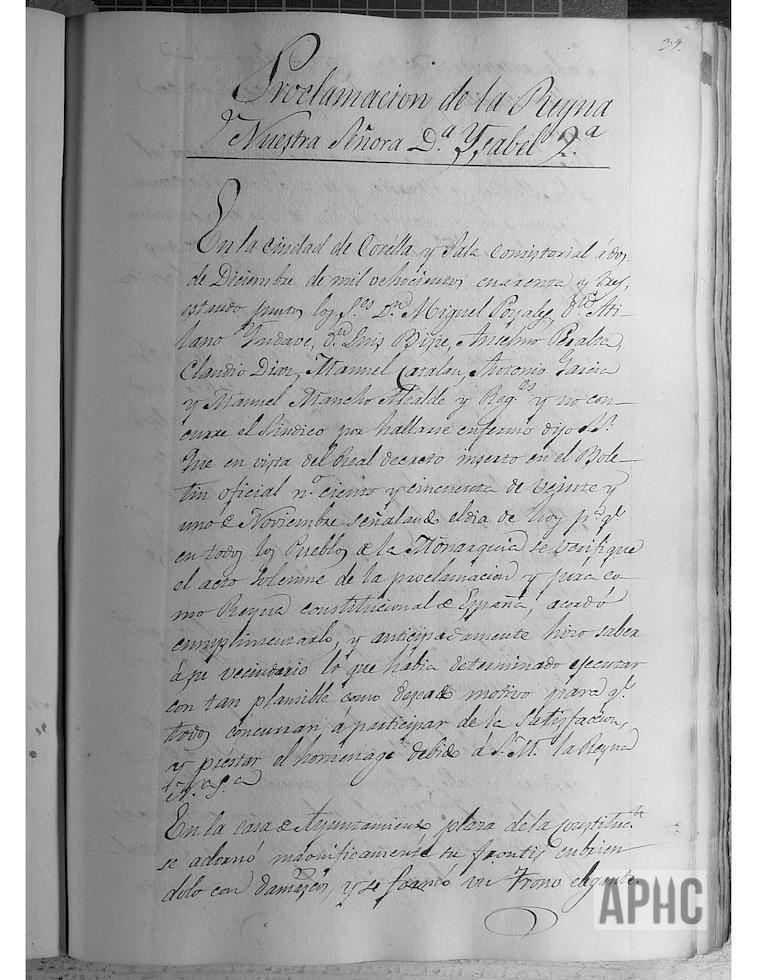 39.
Proclamacion de la Reyna
Nuestra Señora D.ª Ysabel 2.ª
En la ciudad de Corella y Sala Consistorial á dos
de Diciembre de mil ochocientos cuarenta y tres,
estando juntos los S.res D.n Miguel Poyales, D.n Ati-
lano Yudave, D.n Luis Bisie, Anselmo Peralta,
Claudio Diaz, Manuel Catalan, Antonio Garcia
y Manuel Mancho Alcalde y Reg.es y no con-
curre el Sindico por hallarse enfermo dijo S.S.ª
Que en vista del Real decreto inserto en el Bole-
tin oficial n.º ciento y cincuenta de veinte y
uno de Noviembre señalando el dia de hoy p.ª q.e
en todos los Pueblos de la Monarquia se verifique
el acto solemne de la proclamacion y jura co-
mo Reyna constitucional de España, acordó
cumplimentarlo, y anticipadamente hizo saber
á su vecindario lo que habia determinado ejecutar
con tan plausible como deseado motivo para q.e
todos concurran a participar de la satisfaccion,
y prestar el homenage debido á S. M. la Reyna
N.ª S.ª
En la casa de Ayuntamiento, plaza de la constituc.n
se adornó magnificamente su frontis cubrien
dolo con damascos, y se formó un trono elegante.
APHC